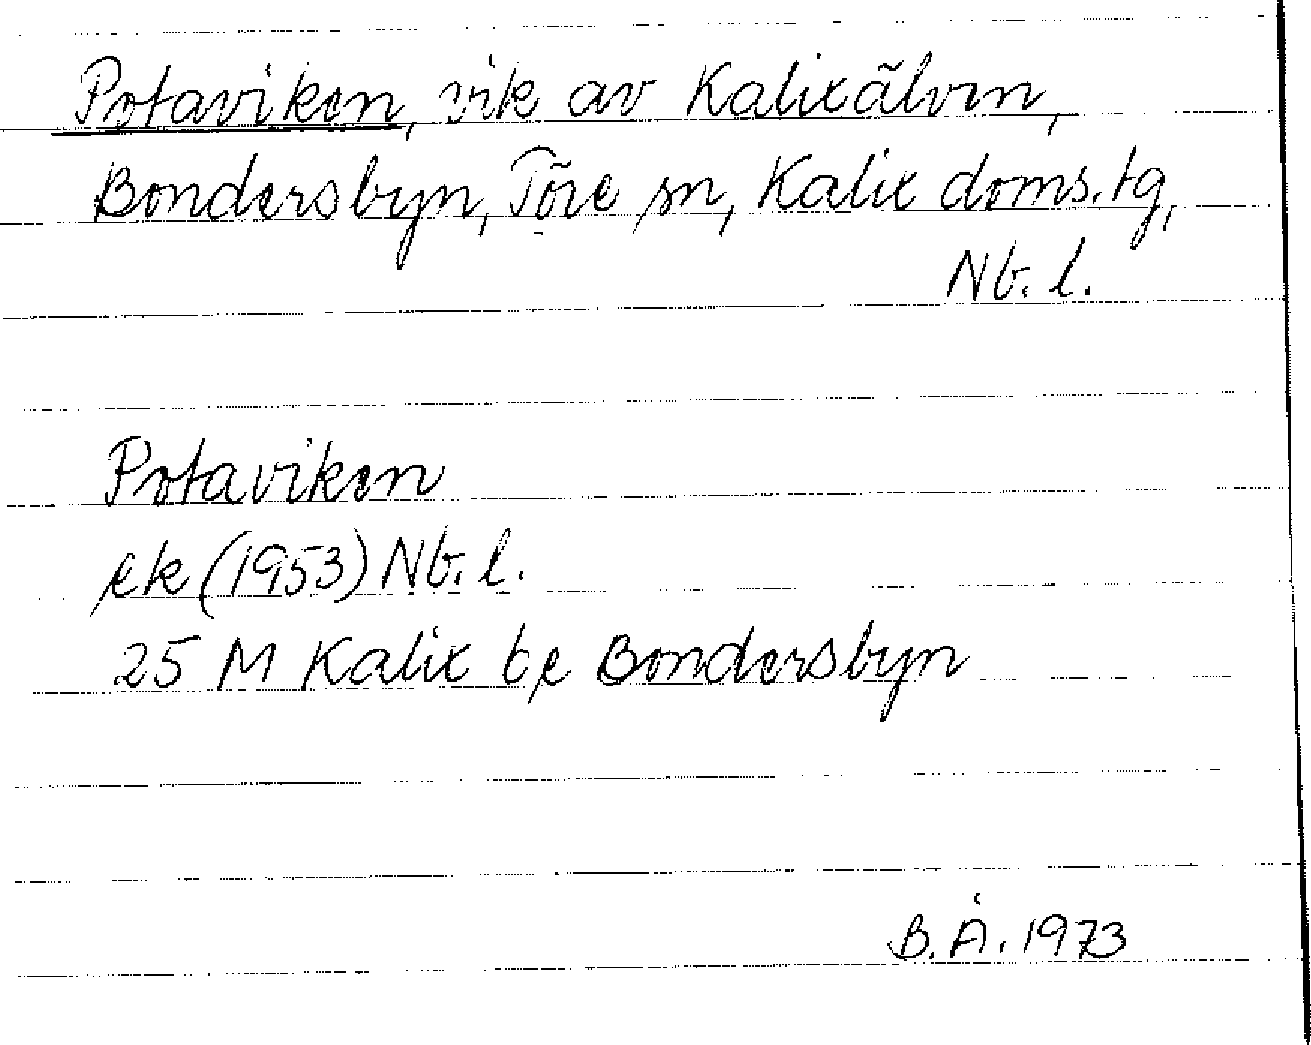 Potaviken, vik av Kalixälven,
Bondersbyn, Töre sn, Kalix doms.tg,
Nb. l.
Potaviken
ek (1953) Nb. l.
25 M Kalix be Bondersbyn
B. Å. 1973